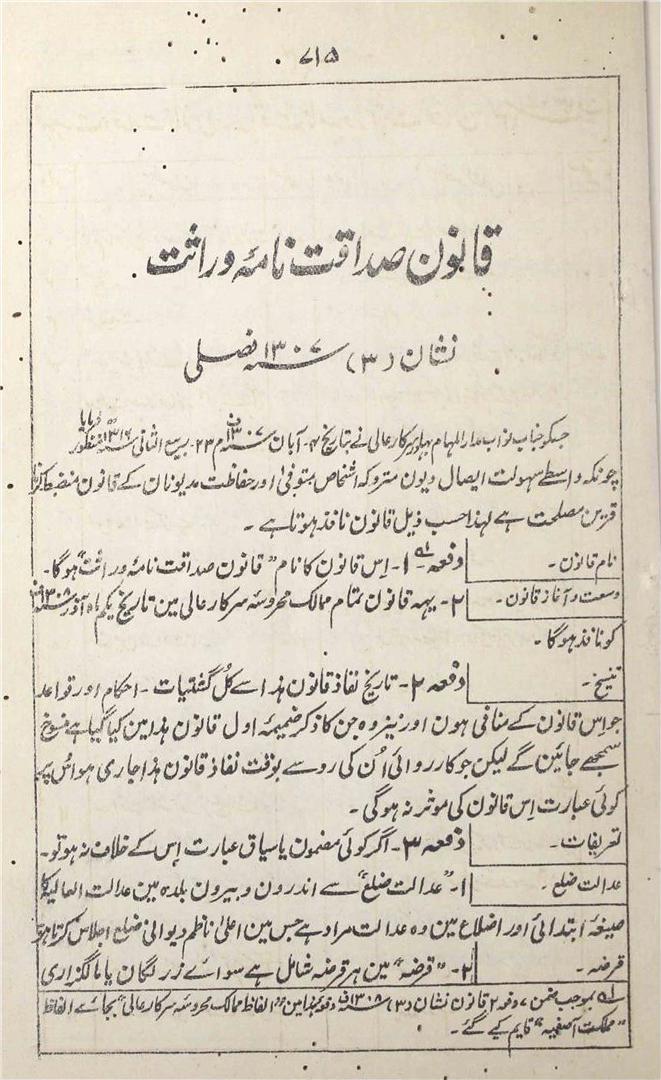 ۷۱۵
قانون صداقت نامۂ وراثت
نشان (۳) سنہ ۱۳۰۷ فصلی
جسکو جناب نواب مدار المہام بہادر سرکار عالی نے بتاریخ ۴۔ آبان سنہ ۱۳۰۷ف م ۲۳۔ ربیع الثانی سنہ ۱۳۱۶ منظور فرمایا
چونکہ واسطے سہولت ایصال دیون متروکہ اشخاص متوفیٰ اور حفاظت مدیونان کے قانون منضبط کرنا
قرین مصلحت ہے لہذا حسب ذیل قانون نافذ ہوتا ہے ۔
نام قانون ۔ دفعہ ۱۔ اِس قانون کا نام ”قانون صداقت نامۂ وراثت“ ہوگا۔
وسعت و آغاز قانون ۔ ۲۔ یہہ قانون تمام ممالک محروسہ سرکار عالی مین تاریخ یکم ماہ آذر سنہ ۱۳۰۸ف
کو نافذ ہوگا ۔
تنسیخ ۔ دفعہ ۲۔ تاریخ نفاذ قانون ہذا سے کُل گشتیات ۔ احکام اور قواعد
جو اِس قانون کے منافی ہون اور نیز وہ جن کا ذکر ضمیمۂ اول قانون ہذا مین کیا گیا ہے منسوخ
سمجھے جائین گے لیکن جو کارروائی اُن کی رو سے بوقت نفاذ قانون ہذا جاری ہو اُس پر
کوئی عبارت اِس قانون کی موثر نہ ہوگی ۔
تعریفات ۔ دفعہ ۳۔ اگر کوئی مضمون یا سیاق عبارت اِس کے خلاف نہ ہو تو ۔
عدالت ضلع ۔ ۱۔ ”عدالت ضلع“ سے اندرون و بیرون بلدہ مین عدالت العالیہ کا
صیغۂ ابتدائی اور اضلاع مین وہ عدالت مراد ہے جس مین اعلیٰ ناظم دیوانی ضلع اجلاس کرتا ہو
قرضہ ۔ ۲۔ ”قرضہ“ مین ہر قرضہ شامل ہے سوائے زر لگان یا مالگزاری
لہ بموجب ضمن ۷ دفعہ ۲ قانون نشان (۳) سنہ ۱۳۰۸ف دفعہ ہذا مین الفاظ ممالک محروسہ سرکار عالی“ بجائے الفاظ
”مملکت آصفیہ“ قایم کیے گئے ۔